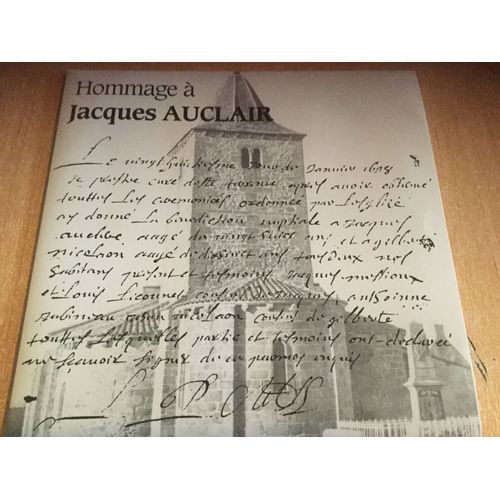 Hommage à
Jacques AUCLAIR
Le vingt huictiesme Jour de Janvier 1698
Je prestre curé de apres avoir observé
touttes Les ceremonies ordonnées par Leglise
ay donné La benediction nuptiale a Jacques
auclere aagé de vingt ans et a gilberte
nicolaon aagé de dixhuict ans tous deux nos
habitans present et tesmoins Jacques
et Louis cousin antoinne
nicolaon cousins de gilberte
touttes Lesquelles partie et tesmoins ont declaré
ne scavoir signer de ce enquis